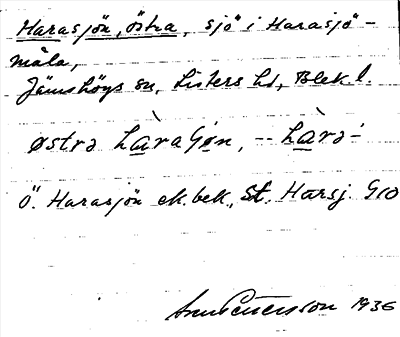 Harasjön, östra, sjö i Harasjö-
måla,
Jämshögs sn, Listers hd, Blek. l.
østrə hàraʃøn, -- hàrə-
Ö. Harasjön ek. bek., St. Harsj. G10
1936